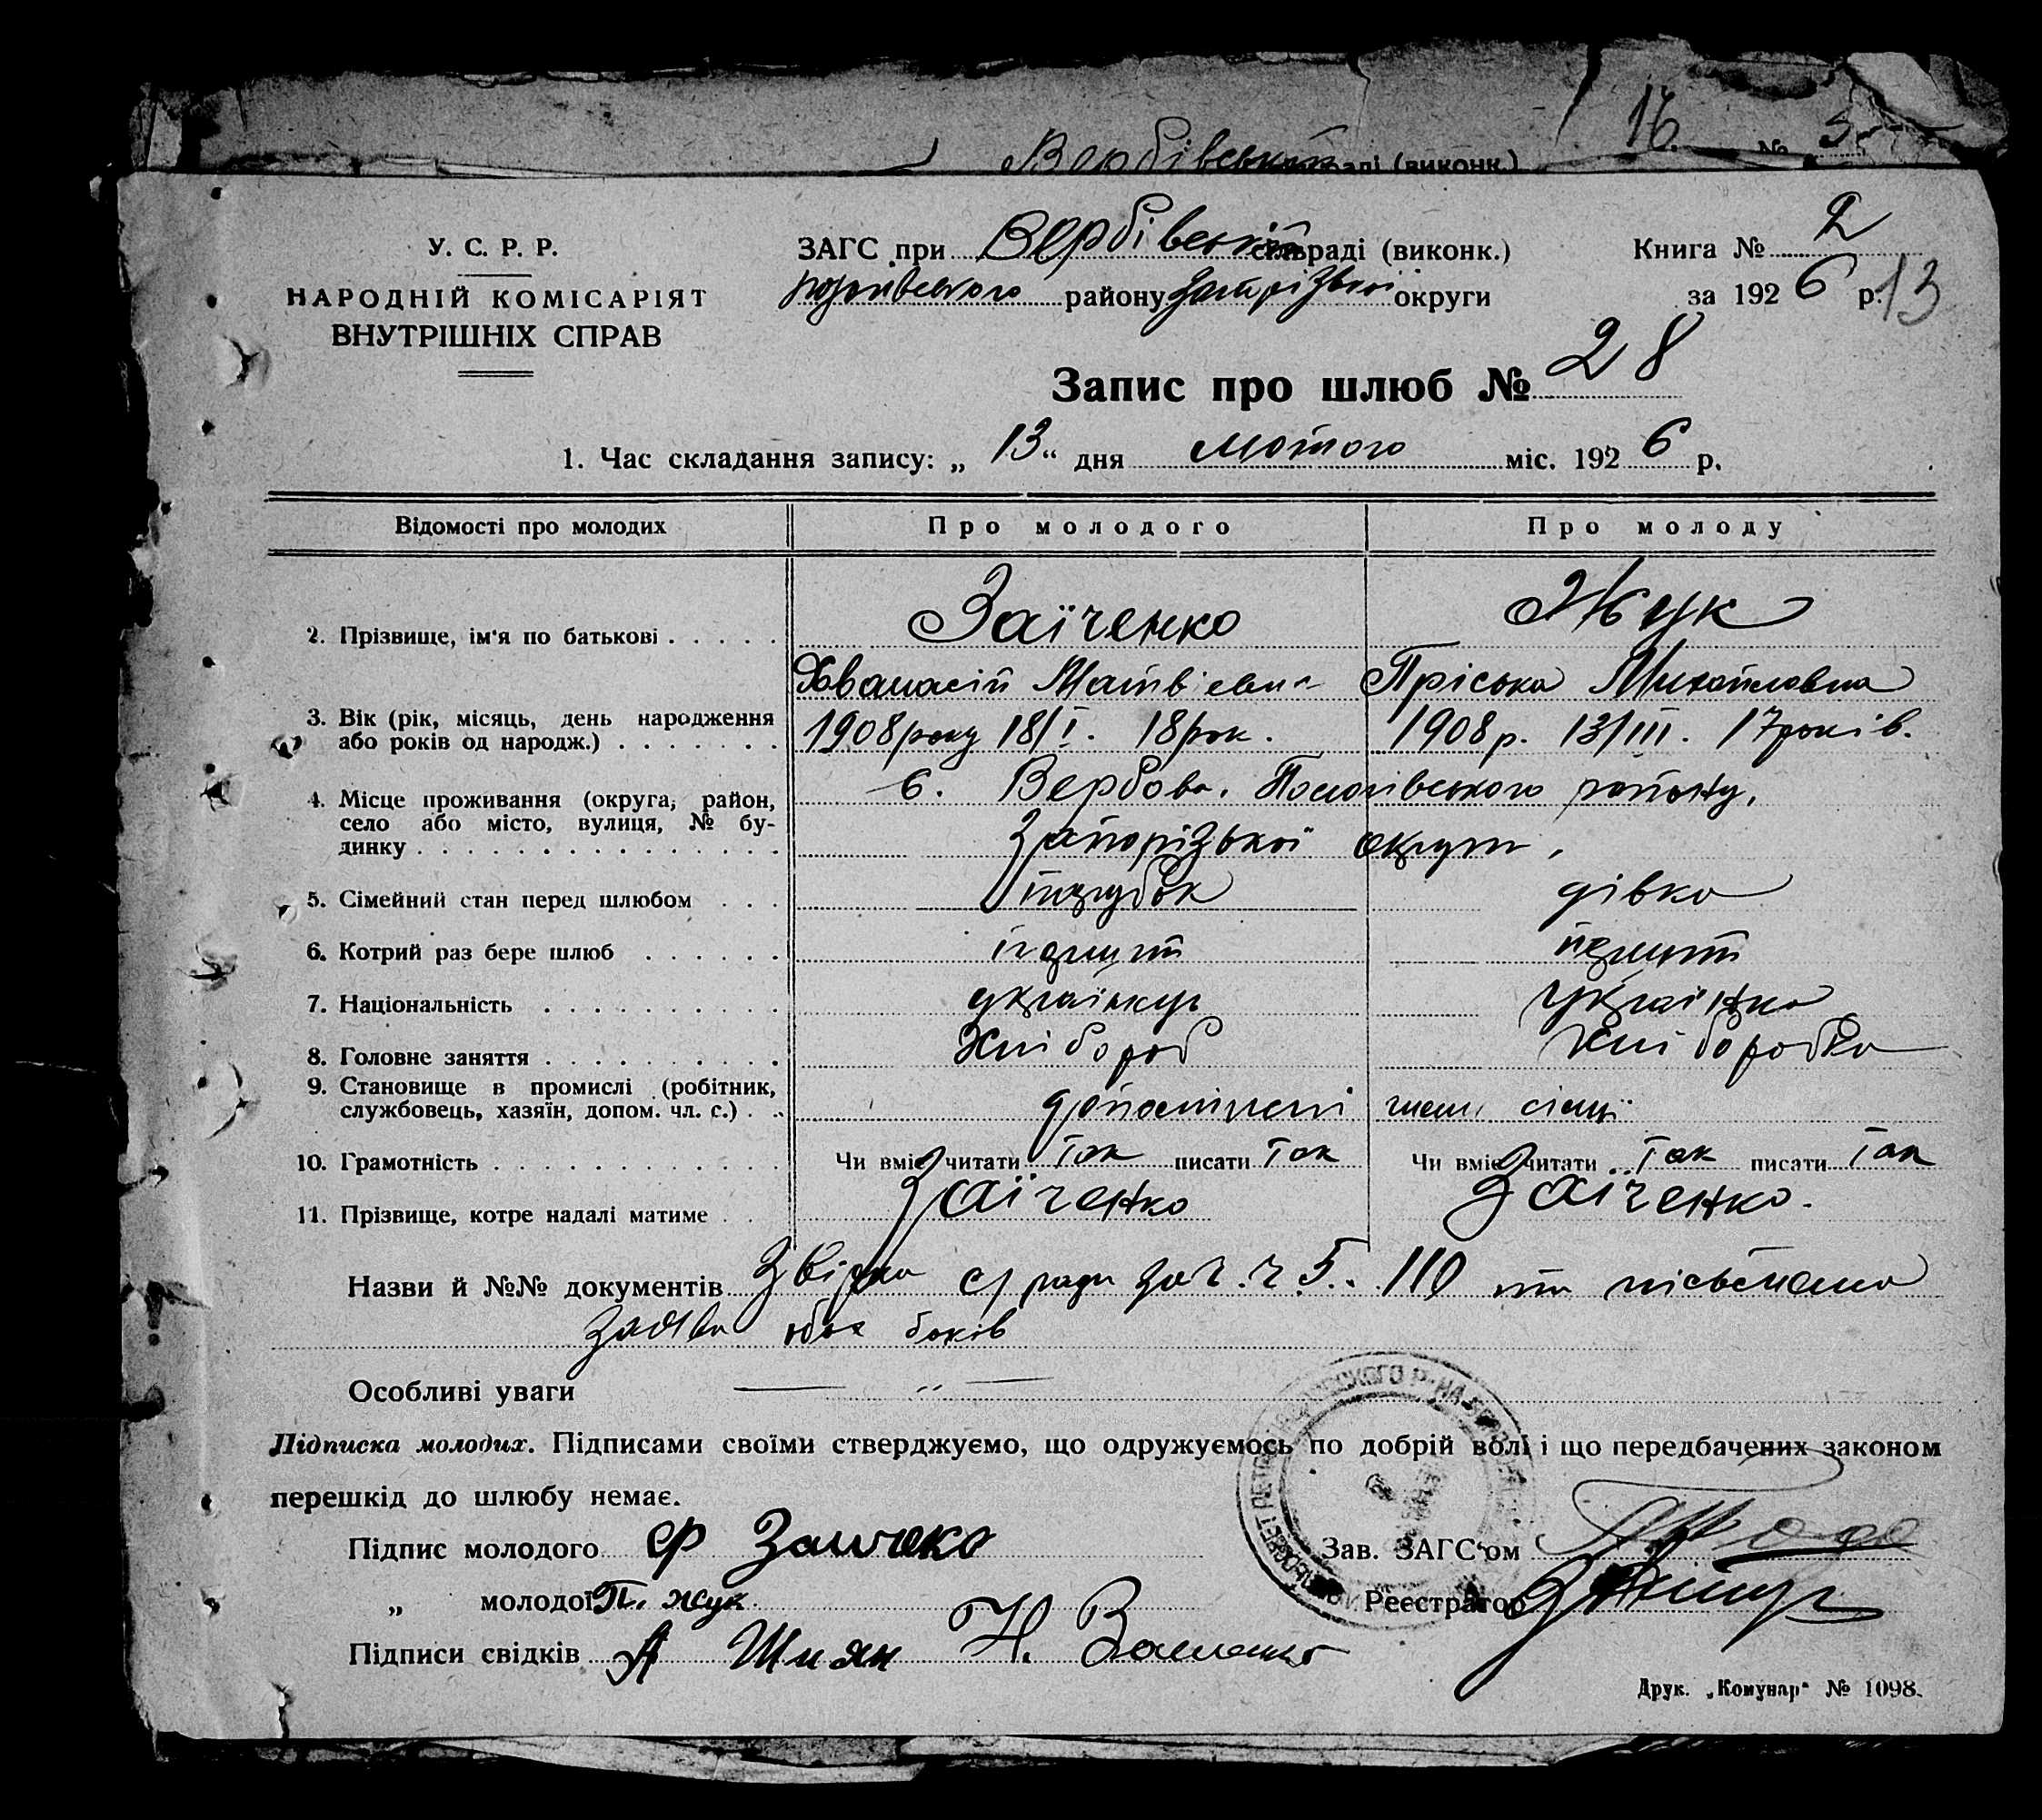 Вербівській раді (виконк.) 16. № 5
У. С. Р. Р.
НАРОДНІЙ КОМІСАРІЯТ
ВНУТРІШНІХ СПРАВ
ЗАГС при Вербівській сільраді (виконк.)
району Запорізької округи
Книга № 2
за 1926 р. 13
Запис про шлюб № 28
1. Час складання запису: „ 13 “ дня лютого міс. 1926 р.
Відомості про молодих Про молодого Про молоду
2. Прізвище, ім'я по батькові . . . . . Заїченко Жук
Хванасій Матвієвич Пріська Михайловна
3. Вік (рік, місяць, день народження
або років од народж.) . . . . . . . 1908 року 18/I. 18 рок. 1908 р. 13/III. 17 років.
4. Місце проживання (округа, район,
село або місто, вулиця, № бу-
динку . . . . . . . . . . . . . . .
с. Вербова. Пологівського району,
Запорізької округи,
5. Сімейний стан перед шлюбом . . . парубок дівка
6. Котрий раз бере шлюб . . . . . . перший перший
7. Національність . . . . . . . . . . українець українка
8. Головне заняття . . . . . . . . . . Хлібороб Хліборобка
9. Становище в промислі (робітник,
службовець, хазяїн, допом. чл. с.) . . члени сім'ї
10. Грамотність . . . . . . . . . . . . Чи вміє читати так писати так Чи вміє читати так писати так
11. Прізвище, котре надалі матиме . . . Заїченко Заїченко.
Назви й №№ документів с/ ради за ч. ч 5. 110 та письмена
заява обох боків
Особливі уваги — „ —
Підписка молодих. Підписами своїми стверджуємо, що одружуємось по добрій волі і що передбачених законом
перешкід до шлюбу немає.
Підпис молодого
„ молодої П. Жук
Підписи свідків А Шиян Н.
Зав. ЗАГС'ом
Реєстратор
Друк. „Комунар“ № 1098.